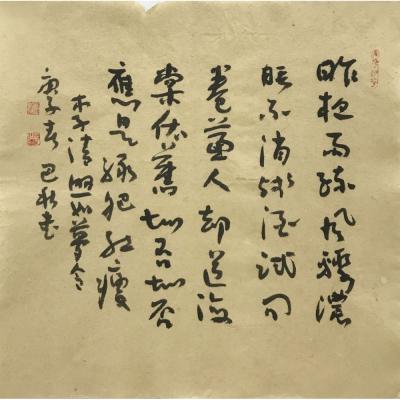 昨夜雨疏风骤濃
睡不消残酒试问
卷簾人却道海
棠依舊知否知否
應是绿肥红瘦
李清照如夢令
庚子春